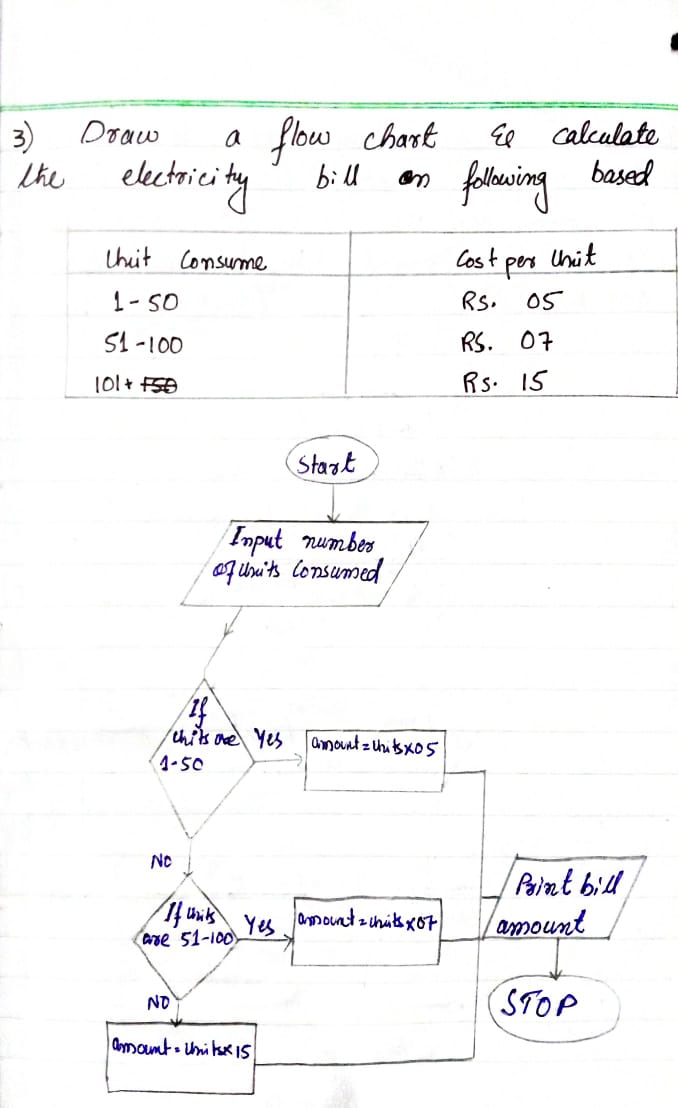 3) Draw a flow chart to calculate
the electricity bill on following based
Unit Consume Cost per Unit
1-50 Rs. 05
51-100 RS. 07
101+ Rs. 15
Start
Input number
of Units Consumed
If
Units are
1-50
Yes
amount=Units×05
NO
If Units
are 51-100
Yes
amount=Units×07
Print bill
amount
NO
STOP
amount=Units×15